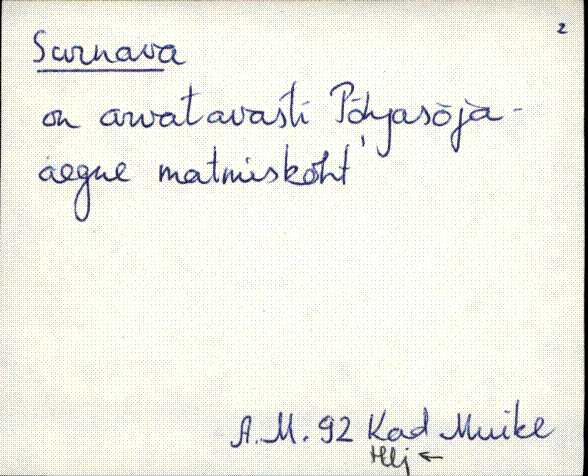 2
Surnava
on arvatavasti Põhjasõja-
aegne matmiskoht
A. M. 92 Kad Muike
Hlj ←